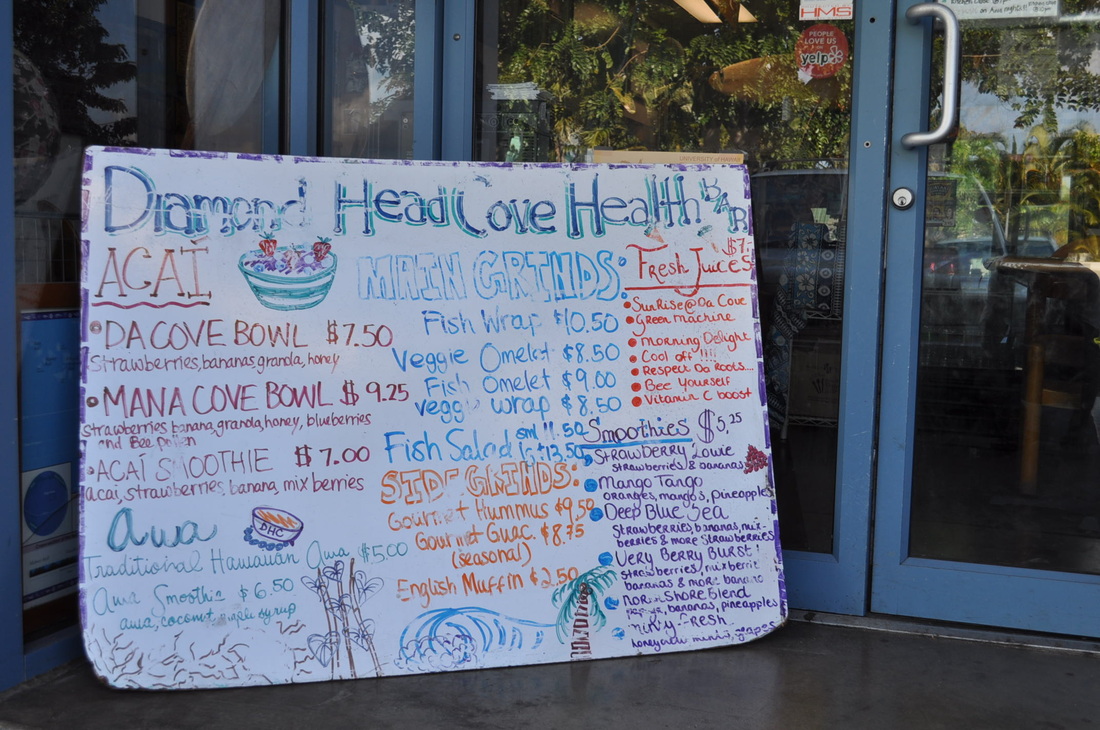 HMS
PEOPLE
LOVE US
yelp
UNIVERSITY OF HAWAII
Diamond Head Cove Health BAR
ACAÍ
DA COVE BOWL $7.50
Strawberries, bananas, granola, honey
MANA COVE BOWL $9.25
Strawberries banana, granola, honey, blueberries
and Bee pollen
ACAÍ SMOOTHIE $7.00
acai, strawberries, banana, mix berries
Awa
DHC
Traditional Hawaiian Awa $5.00
Awa Smoothie $6.50
awa, coconut, maple syrup
MAIN GRINDS:
Fish Wrap $10.50
Veggie Omelet $8.50
Fish Omelet $9.00
Veggie wrap $8.50
Fish Salad sml 11.50
lg $13.50
SIDE GRINDS:
Gourmet Hummus $9.50
Gourmet Guac. $8.75
(seasonal)
English Muffin $2.50
$7.
Fresh Juices
SunRise @ Da Cove
Green Machine
Morning Delight
Cool off !!!!
Respect Da Roots...
Bee Yourself
Vitamin C boost
Smoothies $5.25
Strawberry Louie
strawberries & bananas
Mango Tango
oranges, mangos, pineapples
Deep Blue Sea
Strawberries, bananas, mix-
berries & more strawberries
Very Berry Burst!
strawberries, mixberrie
bananas & more banana
North Shore Blend
bananas, pineapples
Minty Fresh
honeydew, mint, grapes